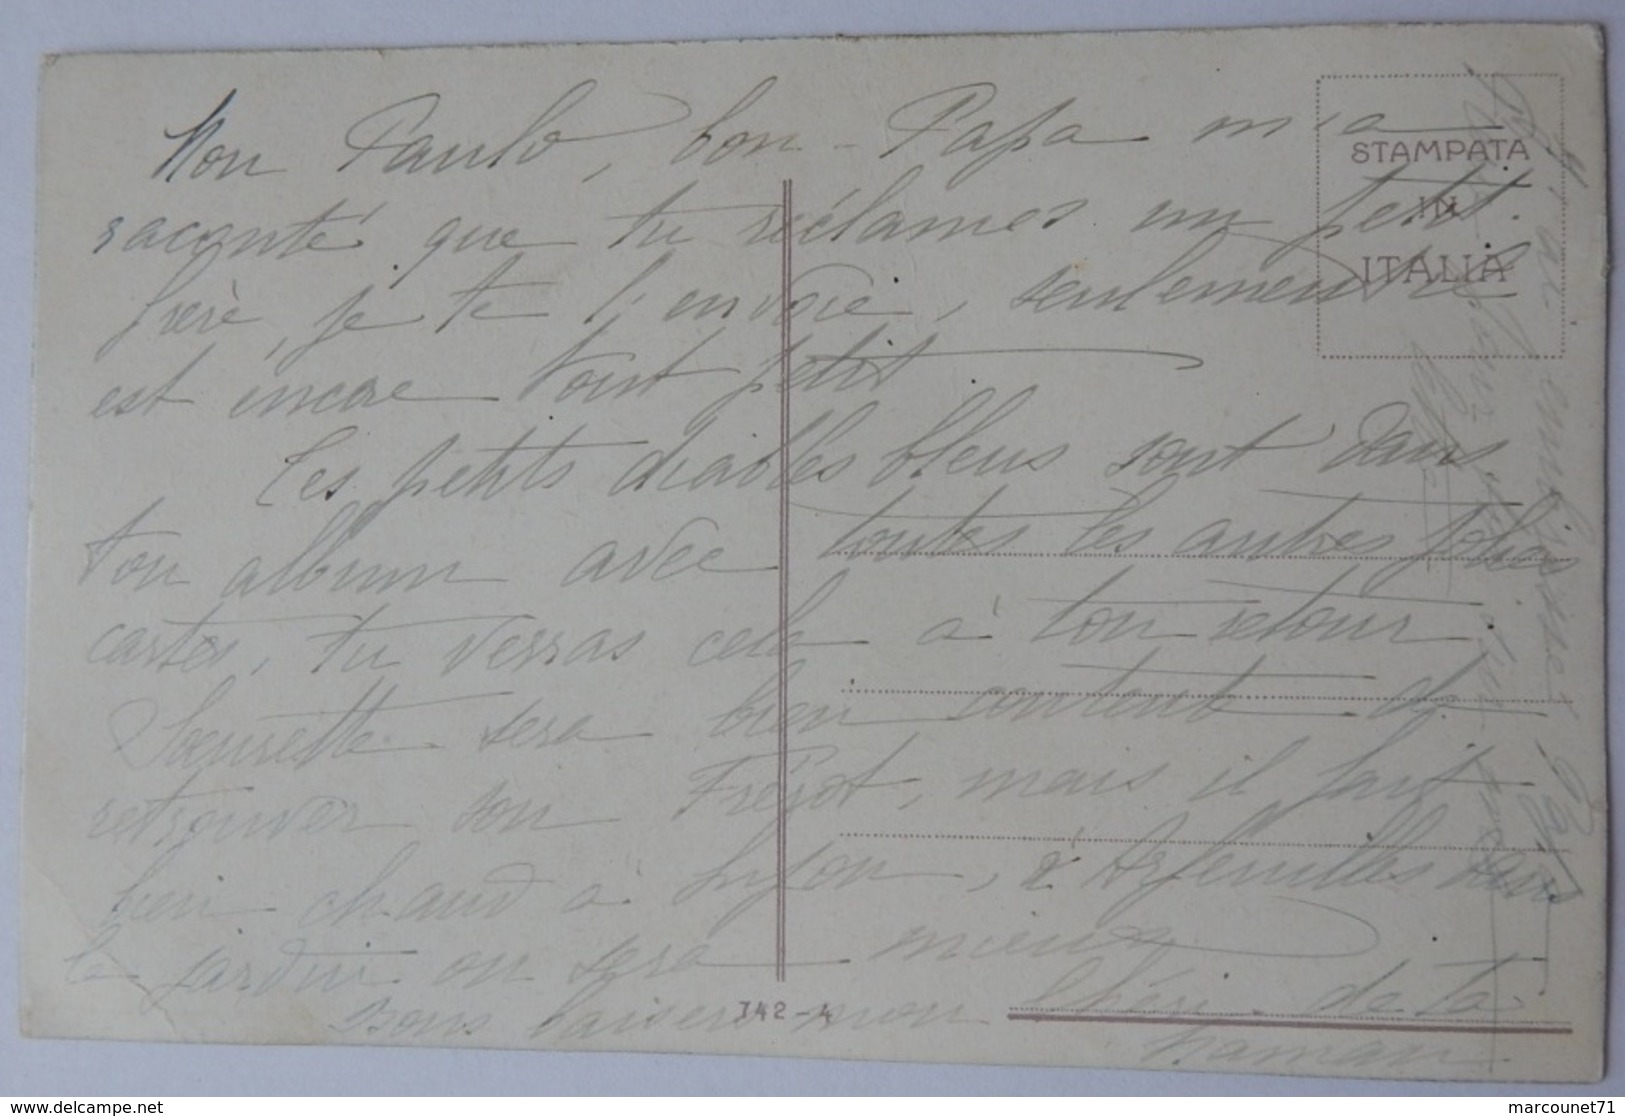 Mon Paulo, bon-Papa m'a
raconté que tu réclames un petit
frère, je te l'envoie, seulement il
est encore tout petit
Les petits diables bleus sont dans
ton album avec toutes les autres jolies
cartes, tu verras cela à ton retour
Soeurette sera bien contente de
retrouver son Frérot, mais il fait
bien chaud à Lyon, à Arfeuilles dans
le jardin on sera mieux
Bons baisers mon Chéri de ta
Maman
STAMPATA
IN
ITALIA
342-4
delcampe.net
marcounet71